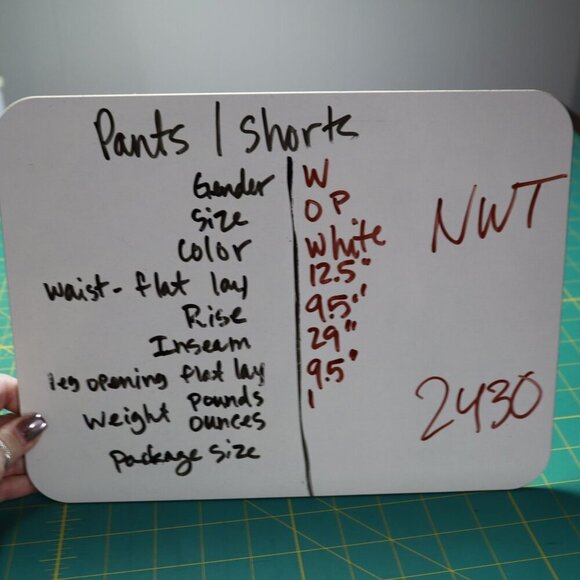 Pants / Shorts
Gender W
Size 0 P
Color White
NWT
Waist - flat lay 12.5"
Rise 9.5"
Inseam 29"
leg opening flat lay 9.5"
Weight pounds 1
ounces
2430
Package Size